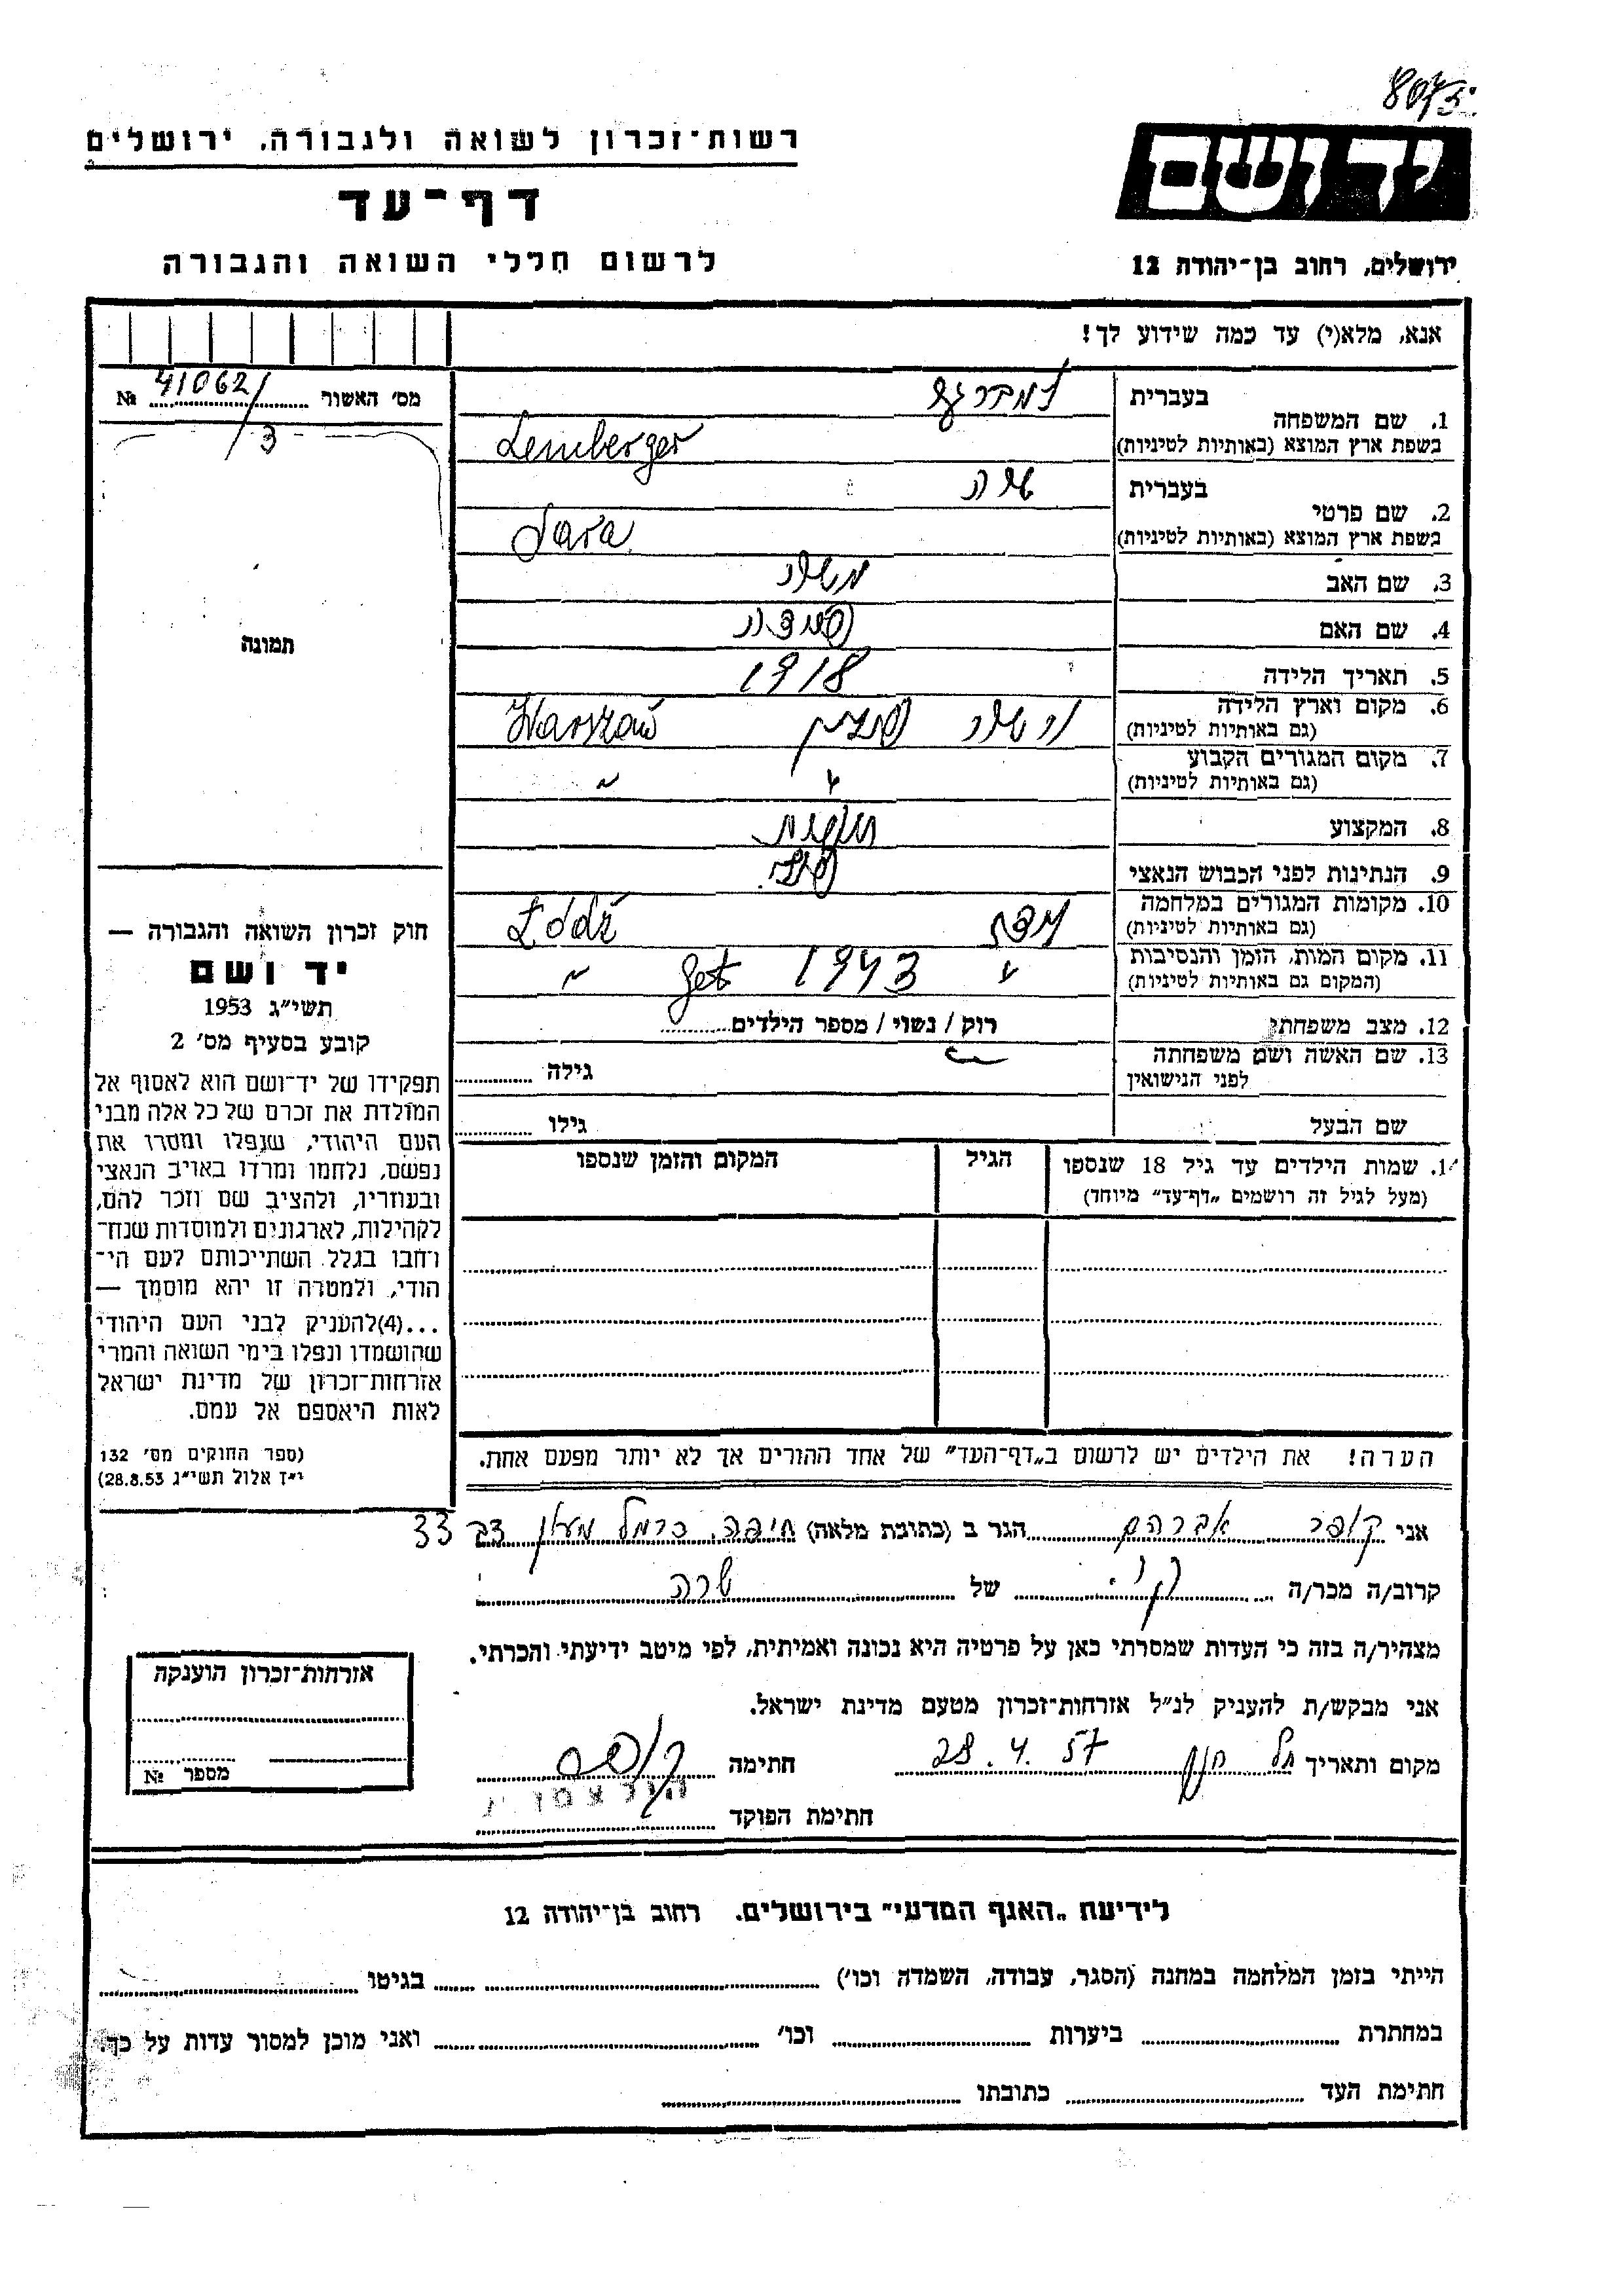 8075
רשות־זכרון לשואה ולגבורה, ירושלים
יד ושם
דף־עד
לרשום חללי השואה והגבורה
ירושלים, רחוב בן־יהודה 12
אנא, מלא(י) עד כמה שידוע לך!
מס' האשור 41062/3 №
תמונה
1. שם המשפחה
בעברית למברגר
בשפת ארץ המוצא (באותיות לטיניות) Lemberger
2. שם פרטי
בעברית שרה
בשפת ארץ המוצא (באותיות לטיניות) Sara
3. שם האב משה
4. שם האם
5. תאריך הלידה 1918
6. מקום וארץ הלידה
(גם באותיות לטיניות) פולין Warszaw
7. מקום המגורים הקבוע
(גם באותיות לטיניות) " "
8. המקצוע
9. הנתינות לפני הכבוש הנאצי
10. מקומות המגורים במלחמה
(גם באותיות לטיניות) לודז Łódź
11. מקום המות, הזמן והנסיבות
(המקום גם באותיות לטיניות) " 1943 get "
12. מצב משפחתי רוק / נשוי / מספר הילדים
13. שם האשה ושם משפחתה
לפני הנישואין גילה
שם הבעל גילו
14. שמות הילדים עד גיל 18 שנספו
(מעל לגיל זה רושמים „דף־עד" מיוחד)
הגיל
המקום והזמן שנספו
חוק זכרון השואה והגבורה —
יד ושם
תשי"ג 1953
קובע בסעיף מס' 2
תפקידו של יד־ושם הוא לאסוף אל
המולדת את זכרם של כל אלה מבני
העם היהודי, שנפלו ומסרו את
נפשם, נלחמו ומרדו באויב הנאצי
ובעוזריו, ולהציב שם וזכר להם,
לקהילות, לארגונים ולמוסדות שנח־
רחבו בגלל השתייכותם לעם הי־
הודי, ולמטרה זו יהא מוסמך —
...(4)להעניק לבני העם היהודי
שהושמדו ונפלו בימי השואה והמרי
אזרחות־זכרון של מדינת ישראל
לאות היאספם אל עמם.
(ספר החוקים מס' 132
י"ז אלול תשי"ג 28.8.53)
הערה! את הילדים יש לרשום ב„דף־העד" של אחד ההורים אך לא יותר מפעם אחת.
אני קופר אברהם הגר ב (כתובת מלאה) חיפה, כרמל מעון 33
קרוב/ה מכר/ה של שרה
מצהיר/ה בזה כי העדות שמסרתי כאן על פרטיה היא נכונה ואמיתית, לפי מיטב ידיעתי והכרתי.
אני מבקש/ת להעניק לנ"ל אזרחות־זכרון מטעם מדינת ישראל.
מקום ותאריך 28.4.57 חתימה קופר
חתימת הפוקד
אזרחות־זכרון הוענקה
מספר №
לידיעת „האגף המדעי" בירושלים. רחוב בן־יהודה 12
הייתי בזמן המלחמה במחנה (הסגר, עבודה, השמדה וכו') בגיטו
במחתרת ביערות וכו' ואני מוכן למסור עדות על כך.
חתימת העד כתובתו